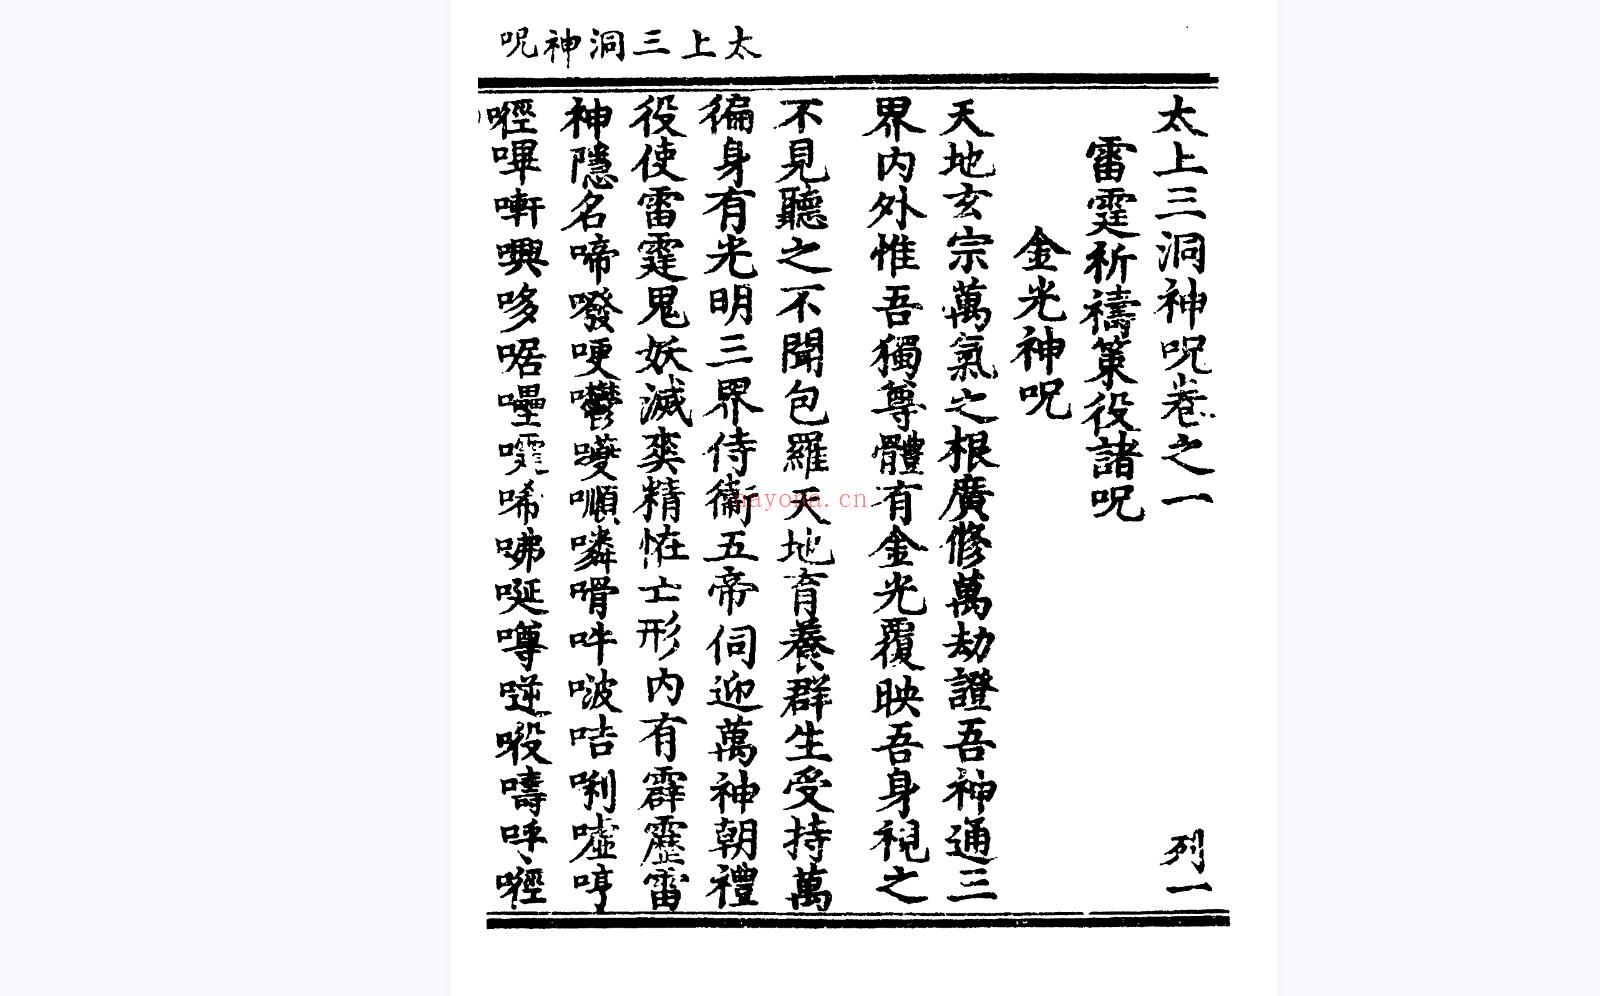 太上三洞神呪
太上三洞神呪卷之一 列一
雷霆祈禱策役諸呪
金光神呪
天地玄宗萬氣之根廣修萬劫證吾神通三
界內外惟吾獨尊體有金光覆映吾身視之
不見聽之不聞包羅天地育養群生受持萬
徧身有光明三界侍衞五帝伺迎萬神朝禮
役使雷霆鬼妖滅爽精恠亡形內有霹靂雷
神隱名啼噃哽嚶順嘹嗗吽啵咭唎噓哼
嚤嗶㖏興哆啹㘔唏咈唌噂逆呼
nayona.cn